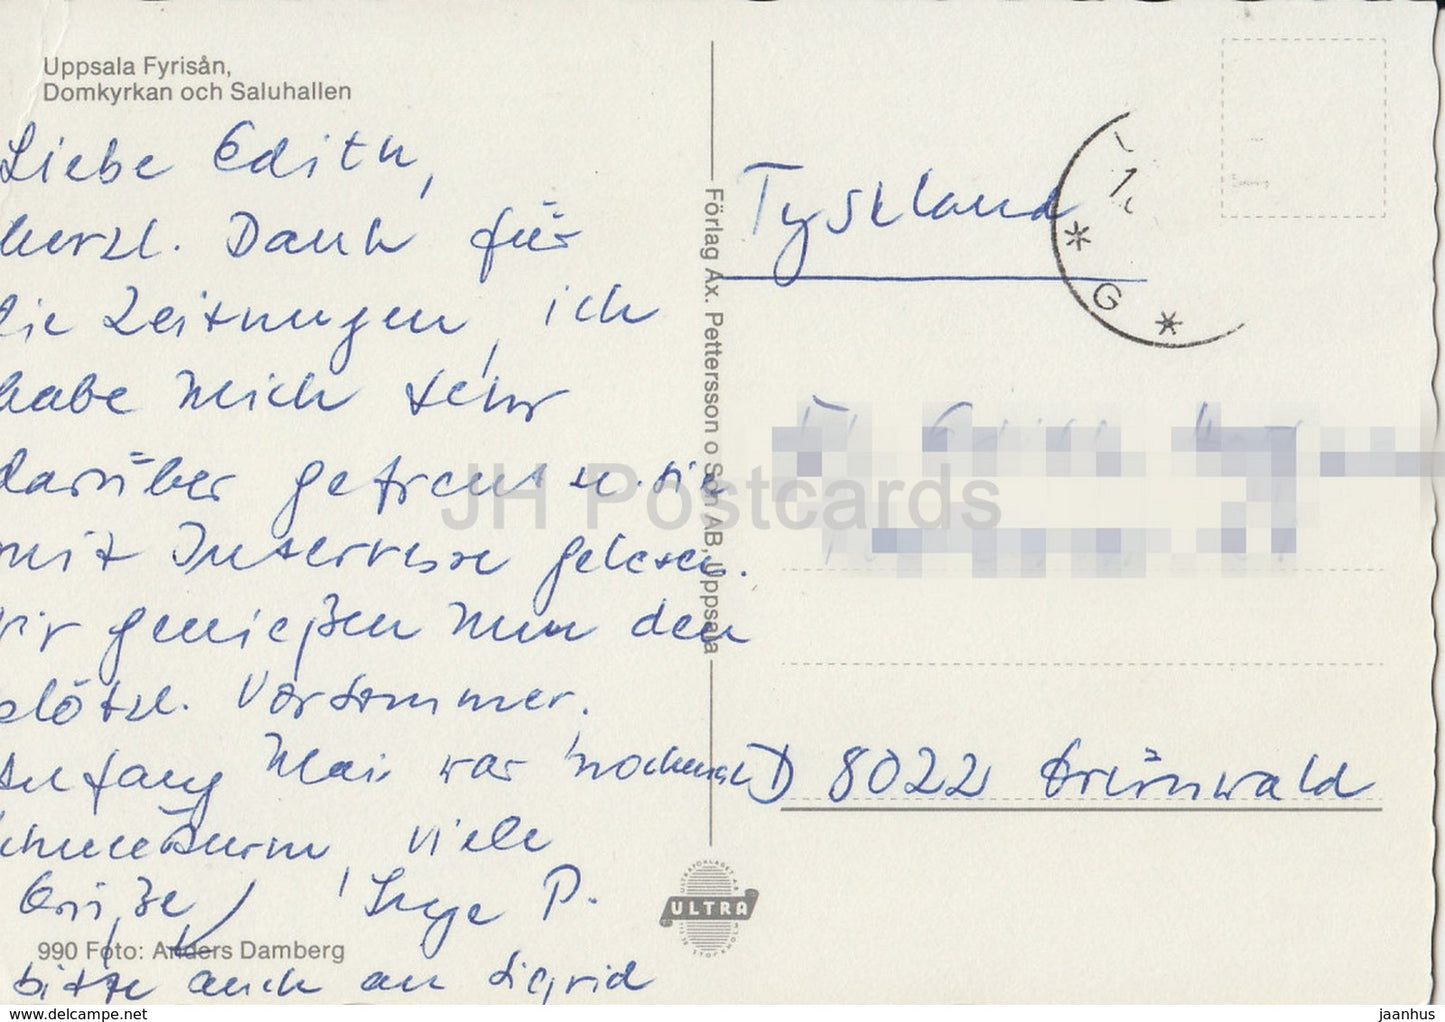 Uppsala Fyrisån,
Domkyrkan och Saluhallen
Liebe Edith,
herzl. Dank für
die Zeitungen, ich
habe mich sehr
darüber gefreut u. sie
mit Interesse gelesen.
Wir genießen nun den
plötzl. Vorsommer.
Anfang Mai war nochmal
Schneesturm, viele
Grüße, Inge P.
bitte auch an Sigrid
990 Foto: Anders Damberg
Förlag Ax. Pettersson o Son AB, Uppsala
Tyskland
G
D 8022 Grünwald
ULTRA
JH Postcards
www.delcampe.net
jaanhus